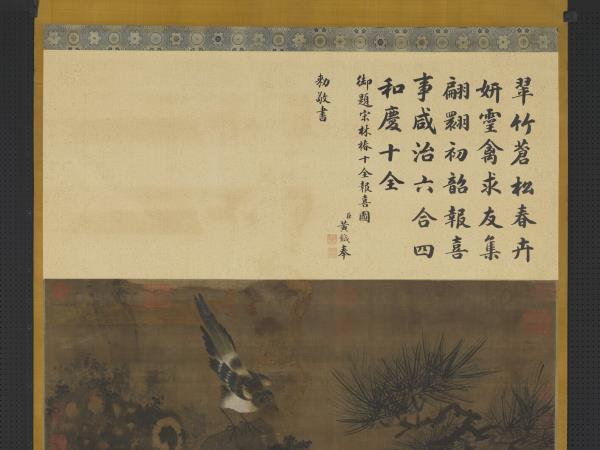 翠竹蒼松春卉
妍霊禽求友集
翩翾初韶報喜
事咸治六合四
和慶十全
御題宋林椿十全報喜圖
臣黃鉞奉
勅敬書